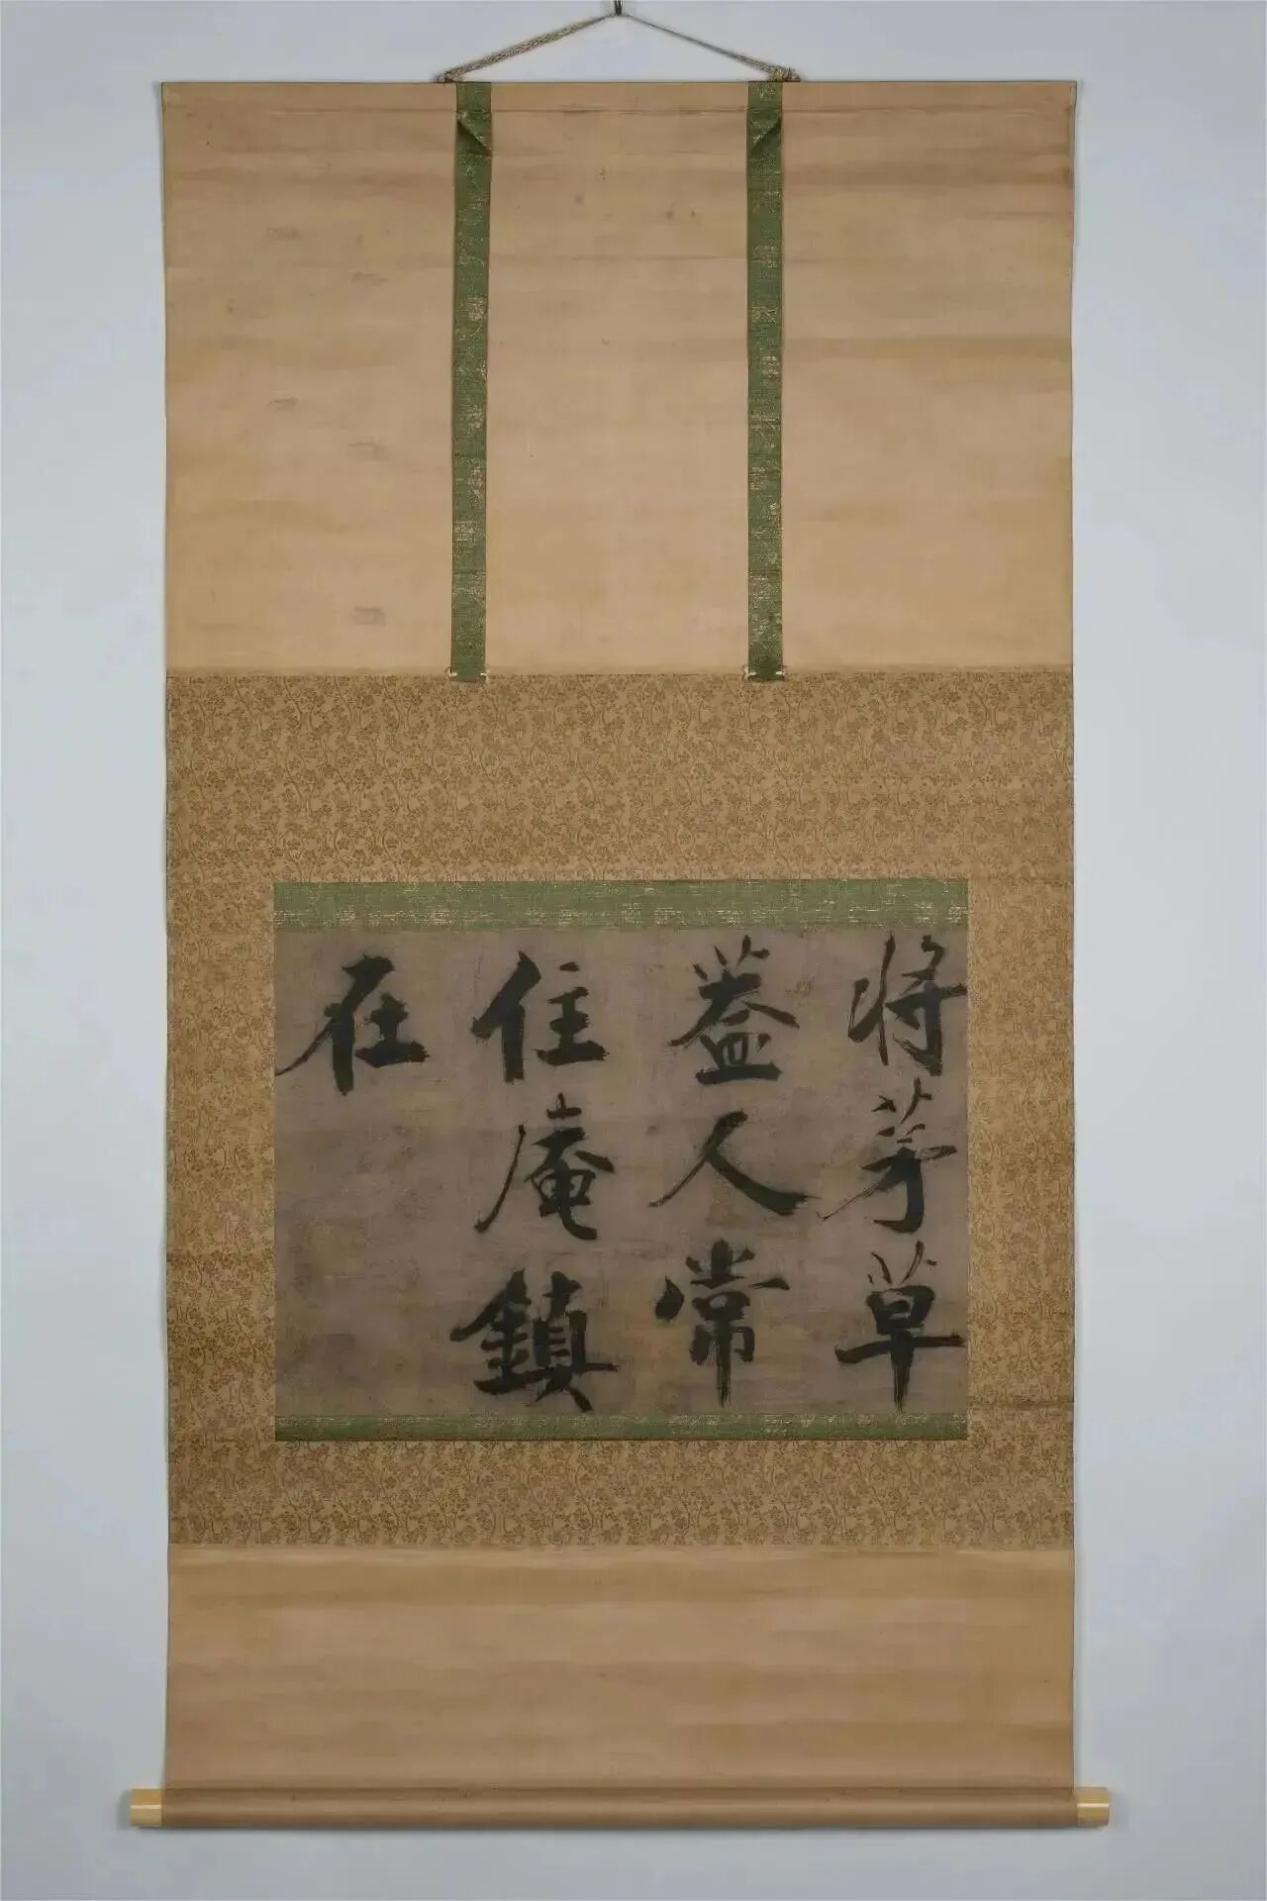 将茅草
葢人常
住庵鎮
在